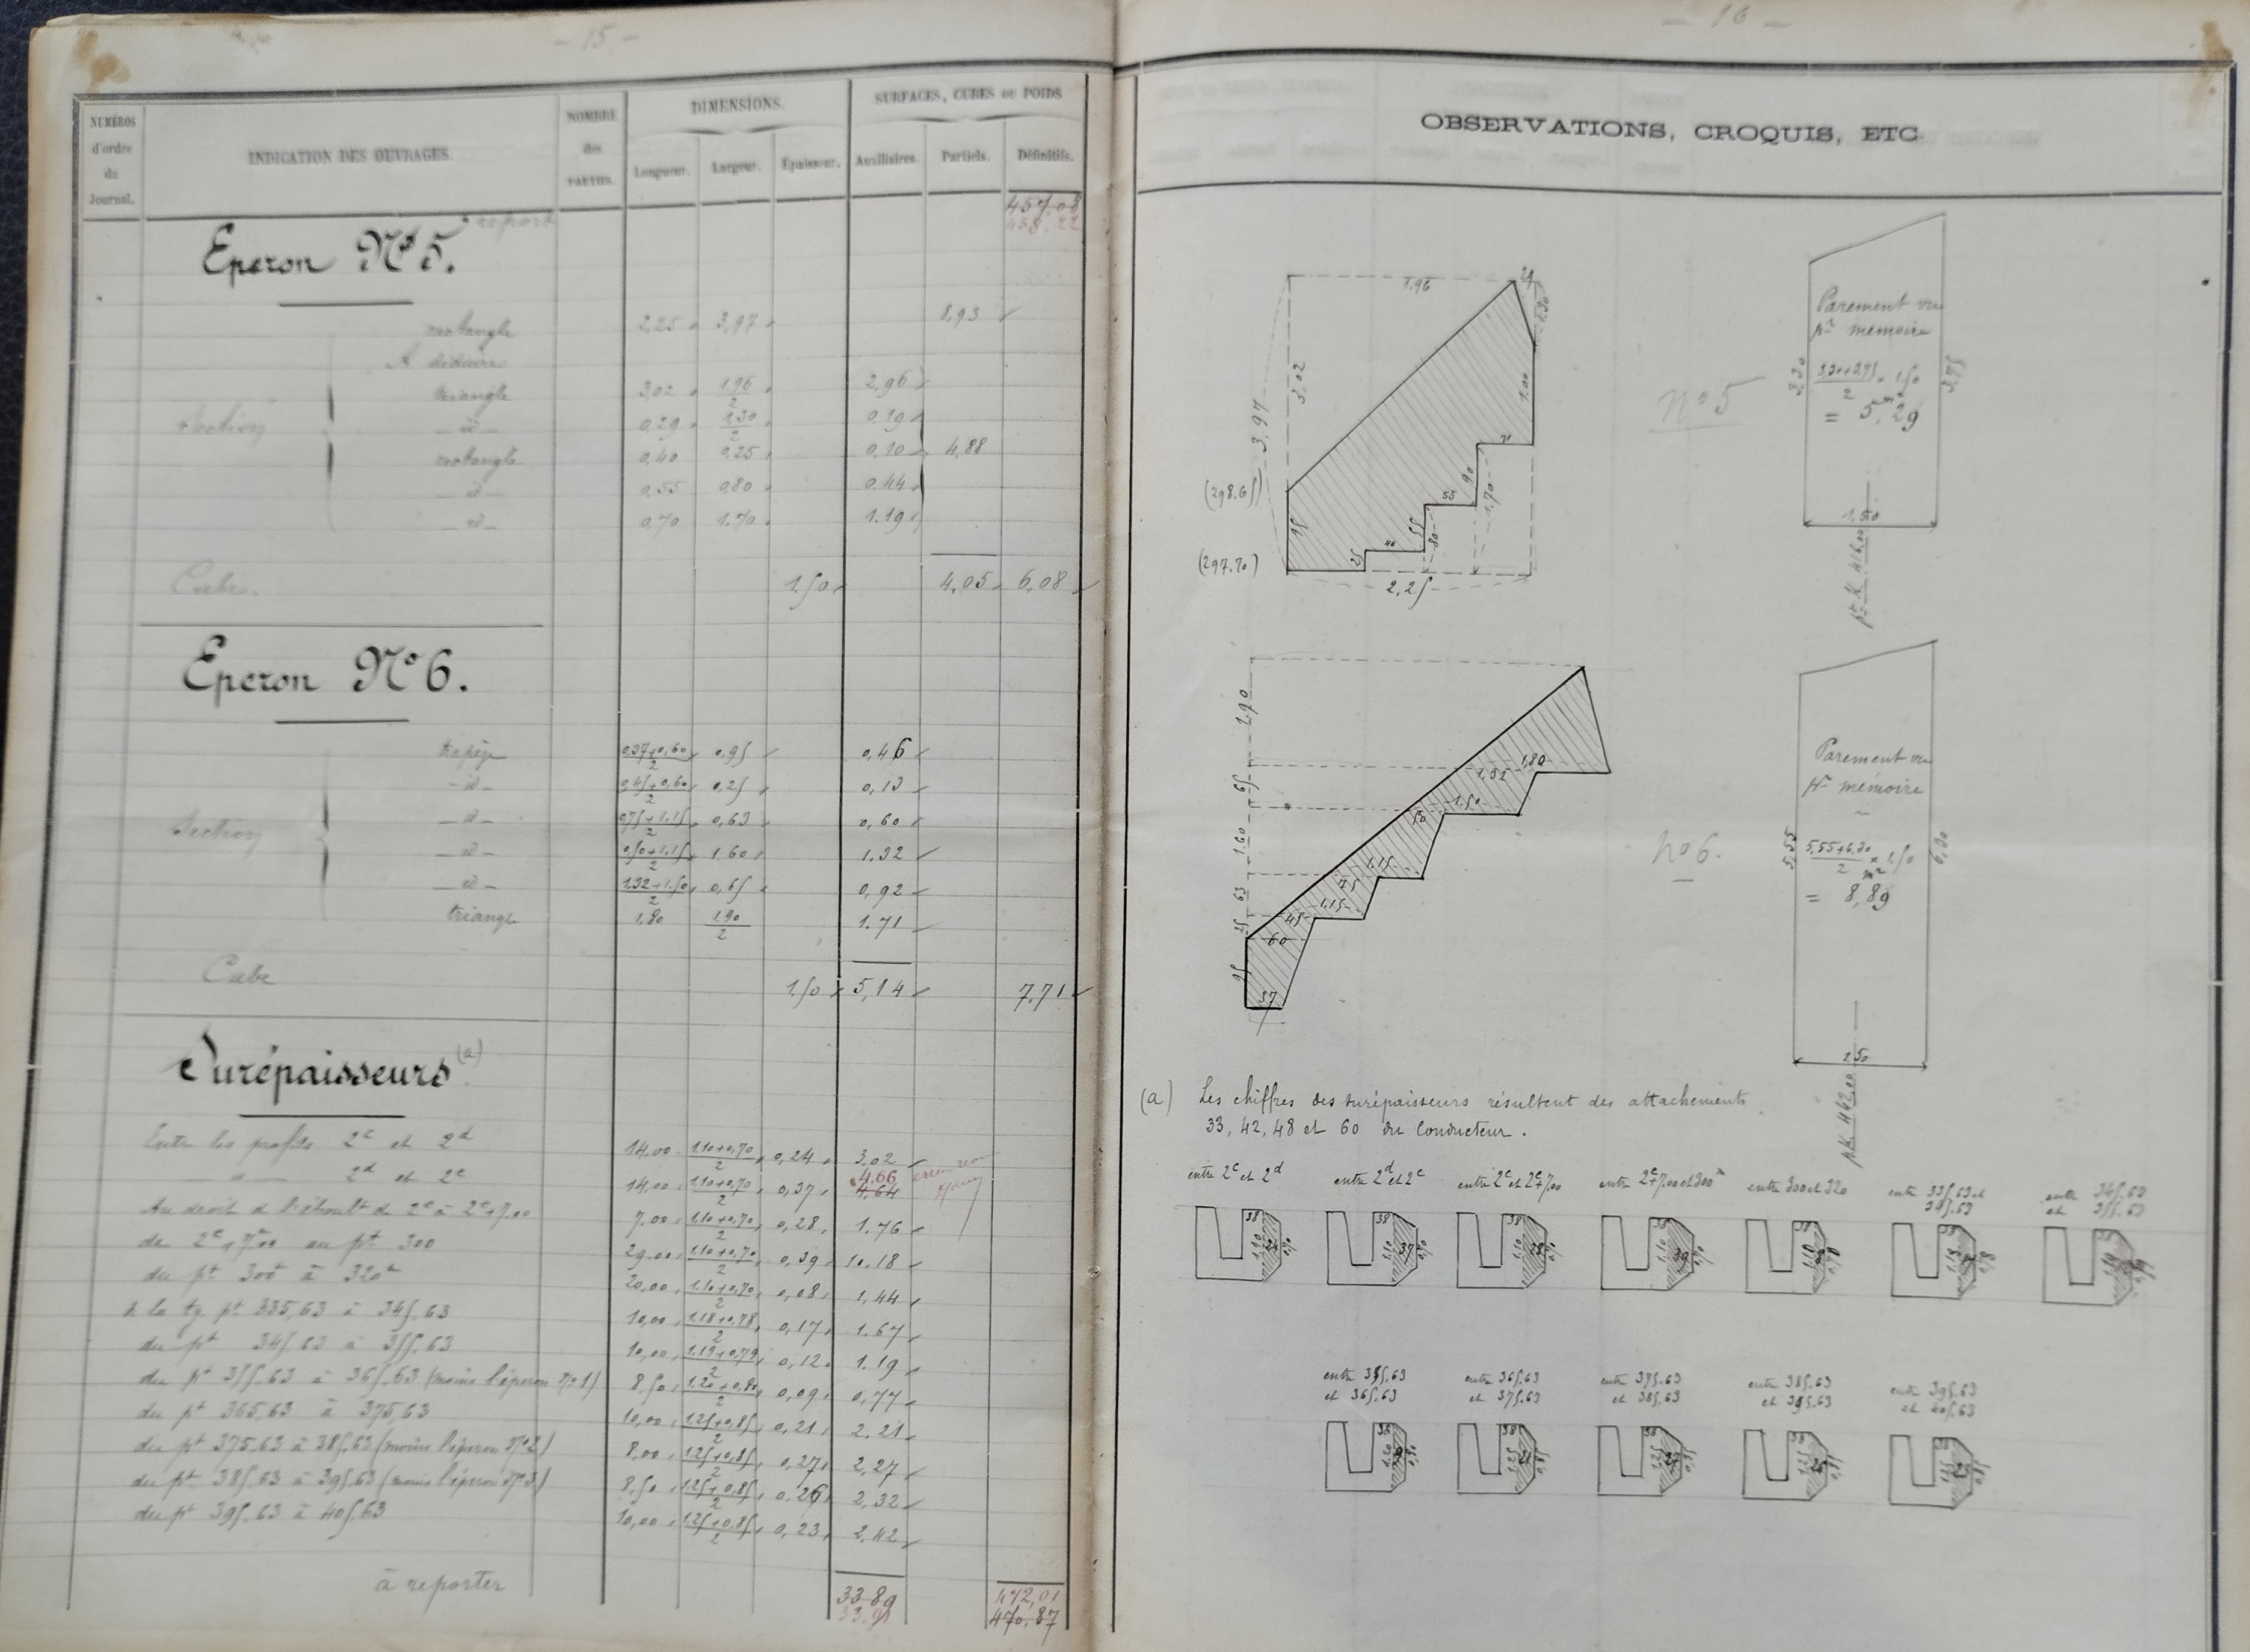 - 15 -
NUMÉROS d'ordre du Journal.
INDICATION DES OUVRAGES.
NOMBRE des PARTIES.
DIMENSIONS.
Longueur. Largeur. Épaisseur.
SURFACES, CUBES OU POIDS
Auxiliaires. Partiels. Définitifs.
report 457,08
458,22
Eperon Nº 5.
rectangle 2,25 3,97 8,93
A déduire
triangle 3,02 1.96/2 2,96
Section -id- 0,29 1,30/2 0,19
rectangle 0,40 0,25 0,10 4,88
-id- 0,55 0,80 0.44
-id- 0,70 1.70 1.19
Cube. 1.50 4,05 6,08
Eperon Nº 6.
trapèze 0,37+0,60/2 0,95 0,46
-id- 0,45+0,60/2 0,25 0,13
Section -id- 0,75+1.15/2 0,63 0,60
-id- 0,50+1.15/2 1,60 1.32
-id- 1.32+1.50/2 0,65 0,92
triangle 1,80 1.90/2 1.71
Cube 1.50 5,14 7,71
Surépaisseurs (a)
Entre les profils 2c et 2d 14.00 1.10+0,70/2 0,24 3.02
-d- 2d et 2e 14,00 1.10+0,70/2 0,37 4.66
4.64
Au droit de l'éboult de 2e à 2e+7.00 7.00 1.10+0,70/2 0,28 1.76
de 2e+7.00 au pt 300 29.00 1.10+0,70/2 0,39 10.18
du pt 300 à 320 20,00 1.10+0,70/2 0,08 1,44
à la tg. pt 335,63 à 345.63 10,00 1.18+0,78/2 0,17 1.67
du pt 345.63 à 355.63 10,00 1.19+0,79/2 0,12 1.19
du pt 355.63 à 365.63 (moins l'éperon nº 1) 8,50 1.20+0,80/2 0,09 0,77
du pt 365,63 à 375,63 10,00 1.25+0,85/2 0,21 2.21
du pt 375.63 à 385.63 (moins l'éperon nº 2) 8.00 1.25+0,85/2 0,27 2,27
du pt 385.63 à 395.63 (moins l'éperon nº 3) 8,50 1.25+0,85/2 0.26 2,32
du pt 395.63 à 405.63 10,00 1.25+0,85/2 0,23 2,42
à reporter 33.89 472,01
33.91 470.87
- 16 -
OBSERVATIONS, CROQUIS, ETC
1.96
29
1.30
3,02
3,97
1.00
70
90
1.70
55
55
80
40
25
95
(298.65)
(297.70)
2,25
nº 5
Parement vu
pr mémoire
3,30+3,75/2 × 1.50
= 5m²,29
3,30
3,75
1,50
pt K 416.00
2.90
65
1.60
63
25
95
1,80
1,32
1.50
50
1.15
75
1.15
45
60
37
nº 6.
Parement vu
pr mémoire
5,55+6,30/2 × 1.50
= 8,89 m²
5,55
6,30
1.50
pt K 462.00
(a) Les chiffres des surépaisseurs résultent des attachements
33, 42, 48 et 60 du Conducteur.
entre 2c et 2d
entre 2d et 2e
entre 2e et 2e+7.00
entre 2e+7.00 et 300
entre 300 et 320
entre 335.63 et 345.63
entre 345.63 et 355.63
entre 355.63 et 365.63
entre 365.63 et 375.63
entre 375.63 et 385.63
entre 385.63 et 395.63
entre 395.63 et 405.63